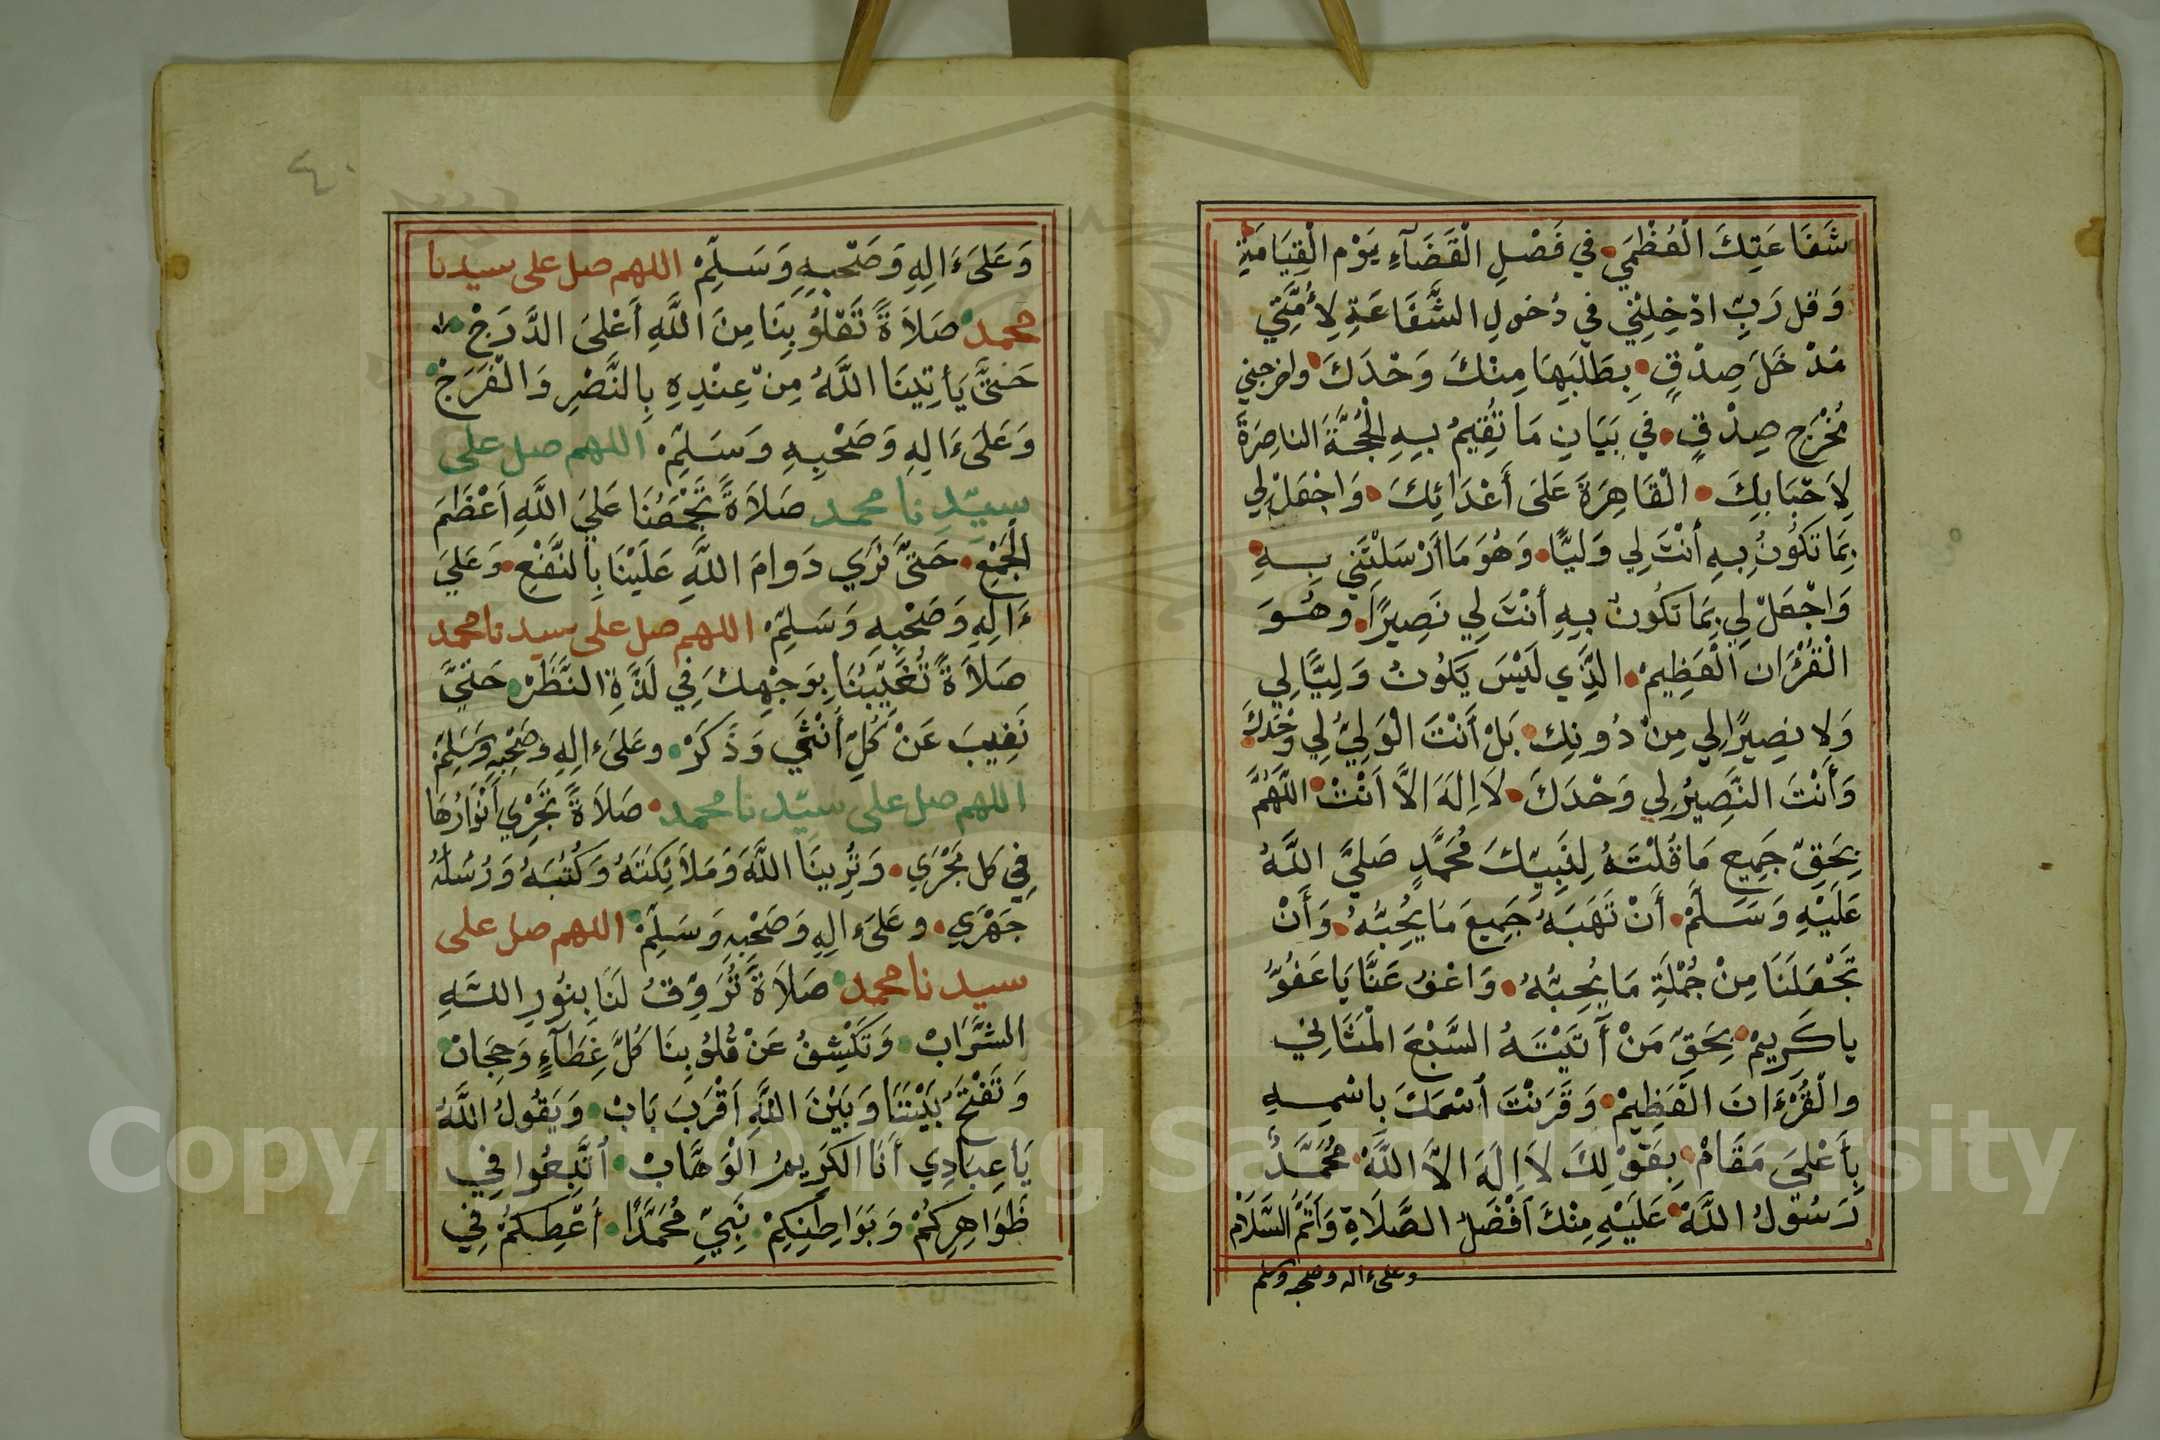 شَفَاعَتِكَ الْعُظْمَي في فَصْلِ الْقَضَآءِ يَوْم الْقِيَامَةِ
وَقل رَبِّ ادْخِلْنِي في دُخولِ الشَّفَاعَةِ لِأُمَّتِي
مُدْخَلَ صِدْقٍ بِطَلَبِهَا مِنْكَ وَحْدَكَ واخرجني
مُخْرَج صِدْقٍ في بَيَانِ مَا تُقِيمُ بِهِ الْحُجَّةَ الناصِرَةَ
لِاَحْبَابِكَ الْقَاهِرَةَ عَلَى أَعْدَائِكَ وَاجْعَلْ لِي
بِمَا تَكُونُ بِهِ أَنْتَ لِي وَلِيًّا وَهُوَ مَا أَرْسَلْتَنِي بِهِ
وَاجْعَلْ لِي بِمَا تَكُونُ بِهِ أَنْتَ لِي نَصِيرًا وهُوَ
الْقُرْآن الْعَظِيمْ الَّذِي لَيْسَ يَكُونُ وَلِيًّا لِي
وَلا نصِيرًا لِي مِنْ دُونِكَ بَلْ أَنْتَ الْوَلِيُّ لِي وَحْدَكَ
وَأَنْتَ النَّصِيرُ لِي وَحْدَكَ لاَ اِلَهَ الاَّ اَنْتْ اللَّهُمَّ
بِحَقِّ جَمِيعِ مَا قُلْتَهُ لِنَبِيِّكَ مُحَمَّدٍ صَلَيَّ اللَّهُ
عَلَيْهِ وَسَلَّمْ أَنْ تَهَبَهُ جَمِيعَ مَا يُحِبُّهُ وَأَنْ
تَجْعَلَنَا مِنْ جُمْلَةِ مَا يُحِبُّهُ وَاعْفُ عَنَّا يَا عَفُوُّ
يا كَرِيمْ بِحَقِّ مَنْ آتَيْتَهُ السَّبْعَ الْمَثَانِي
والْقُرْءَانَ الْعَظِيمْ وَقَرَنْتَ اسْمَكَ باسْمِهِ
بِأَعْلَيَ مَقَامْ بِقَوْلِكَ لاَ اِلَهَ الاَّ اللَّهْ مُحَمَّدٌ
رَسُولُ اللَّهْ عَلَيْهِ مِنْكَ أَفْضَلُ الصَّلَاةِ وَأَتَمُّ السَّلَامْ
وعلىءاله وصحبه وسلم
٤٠
وَعَلَىءَالِهِ وَصَحْبِهِ وَسَلِّمْ اللهم صل على سيدنا
محمد صَلاَةً تَعْلُو بِنَا مِنَ اللَّهِ أَعْلَىَ الدَّرَجْ
حَتىَّ يَأتِيَنَا اللَّهُ مِنْ عِنْدِهِ بِالنَّصْرِ وَالْفَرَجْ
وَعَلَىءَالِهِ وَصَحْبِهِ وَسَلِّمْ اللهم صل على
سيّدِنا محمد صَلاَةً تَجْمَعُنَا عَلَيَ اللَّهِ اَعْظَمَ
الْجَمْعِ حَتىَّ نَرَي دَوامَ اللَّهِ عَلَيْنَا بِالنَّفْعِ وَعَلَيَ
ءَالِهِ وَصَحْبِهِ وَسَلِّمْ اللهم صل على سيدنا محمد
صَلاَةً تُغَيِّبُنَا بِوَجْهِكَ فِي لَذَّةِ النَّظَرْ حَتيَّ
نَغِيبَ عَنْ كُلِّ أُنْثَي وَذَكَرْ وعَلَىءالِهِ وصَحْبِهِ وسَلِّمْ
اللهم صل على سيّدنا محمد صَلاَةً تَجْرِي أَنْوَارُهَا
فِي كل مَجْرَي وَتُرِينَا اللَّهَ وَمَلاَئِكَتَهُ وَكُتُبَهُ وَرُسُلَهُ
جَهْرَي وعَلَىءالِهِ وَصَحْبِهِ وَسَلِّمْ اللهم صل على
سيدنا محمد صَلاَةً تُرَوِّقُ لَنَا بِنُورِ اللَّهِ
الشَّرَابْ وَتَكْشِفُ عَنْ قُلُوبِنَا كُلَّ غِطَآءٍ وَحِجَابْ
وَتَفْتَحُ بَيْنَنَا وَبَيْنَ اللَّهِ اَقْرَبَ بَابْ وَيَقُولُ اللَّهُ
يَاعِبَادِي أَنَا الكَرِيمُ الْوَهَّابْ اتَّبِعُوا فِي
ظَوَاهِرِكُمْ وَبَوَاطِنِكِمْ نَبِيِّ مُحَمَّدًا أُعْطِكُمْ فِي
Copyright © King Saud University